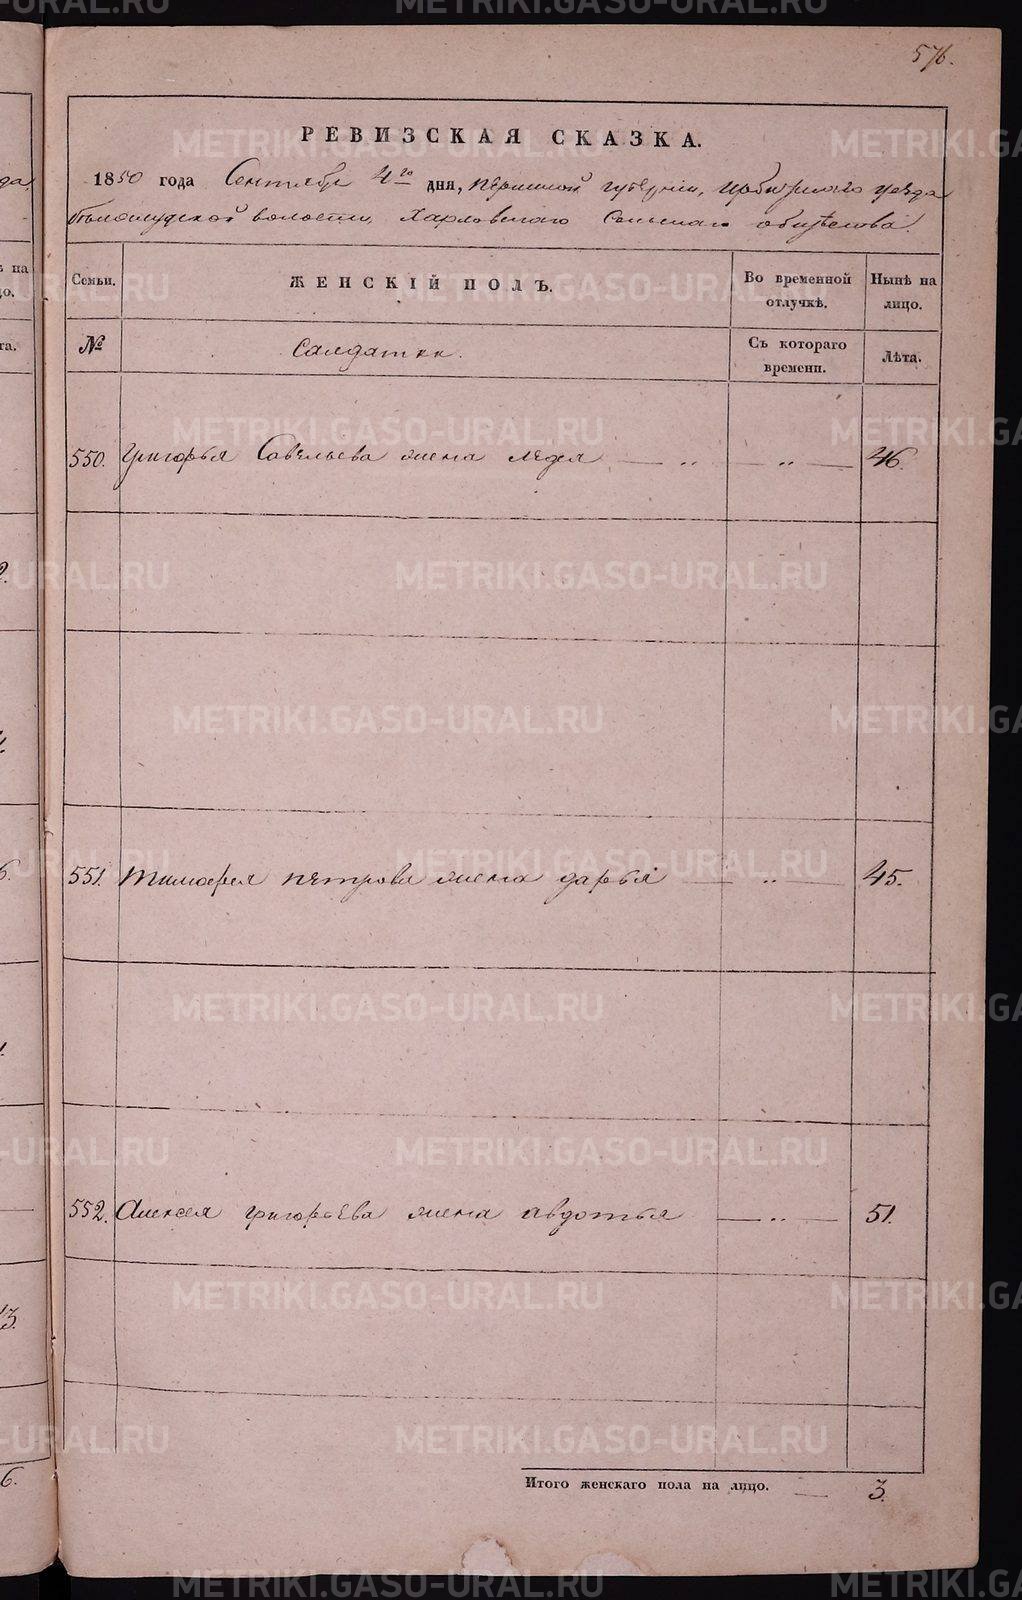 576.
РЕВИЗСКАЯ СКАЗКА.
1850 года Сентября 4го дня, Пермской губерніи, Ирбитскаго уезда
Белослудской волости, Харловскаго Сельскаго общѣства.
Семьи. ЖЕНСКІЙ ПОЛЪ. Во временной отлучкѣ. Нынѣ на лицо.
№ Салдатки. Съ котораго времени. Лѣта.
550. Григорья Савельева жена — „ — „ — 46.
551. Тимофея петрова жена дарья — „ — 45.
552. Алексея григорьева жена авдотья — „ — 51.
Итого женскаго пола на лицо. — 3.
METRIKI.GASO-URAL.RU